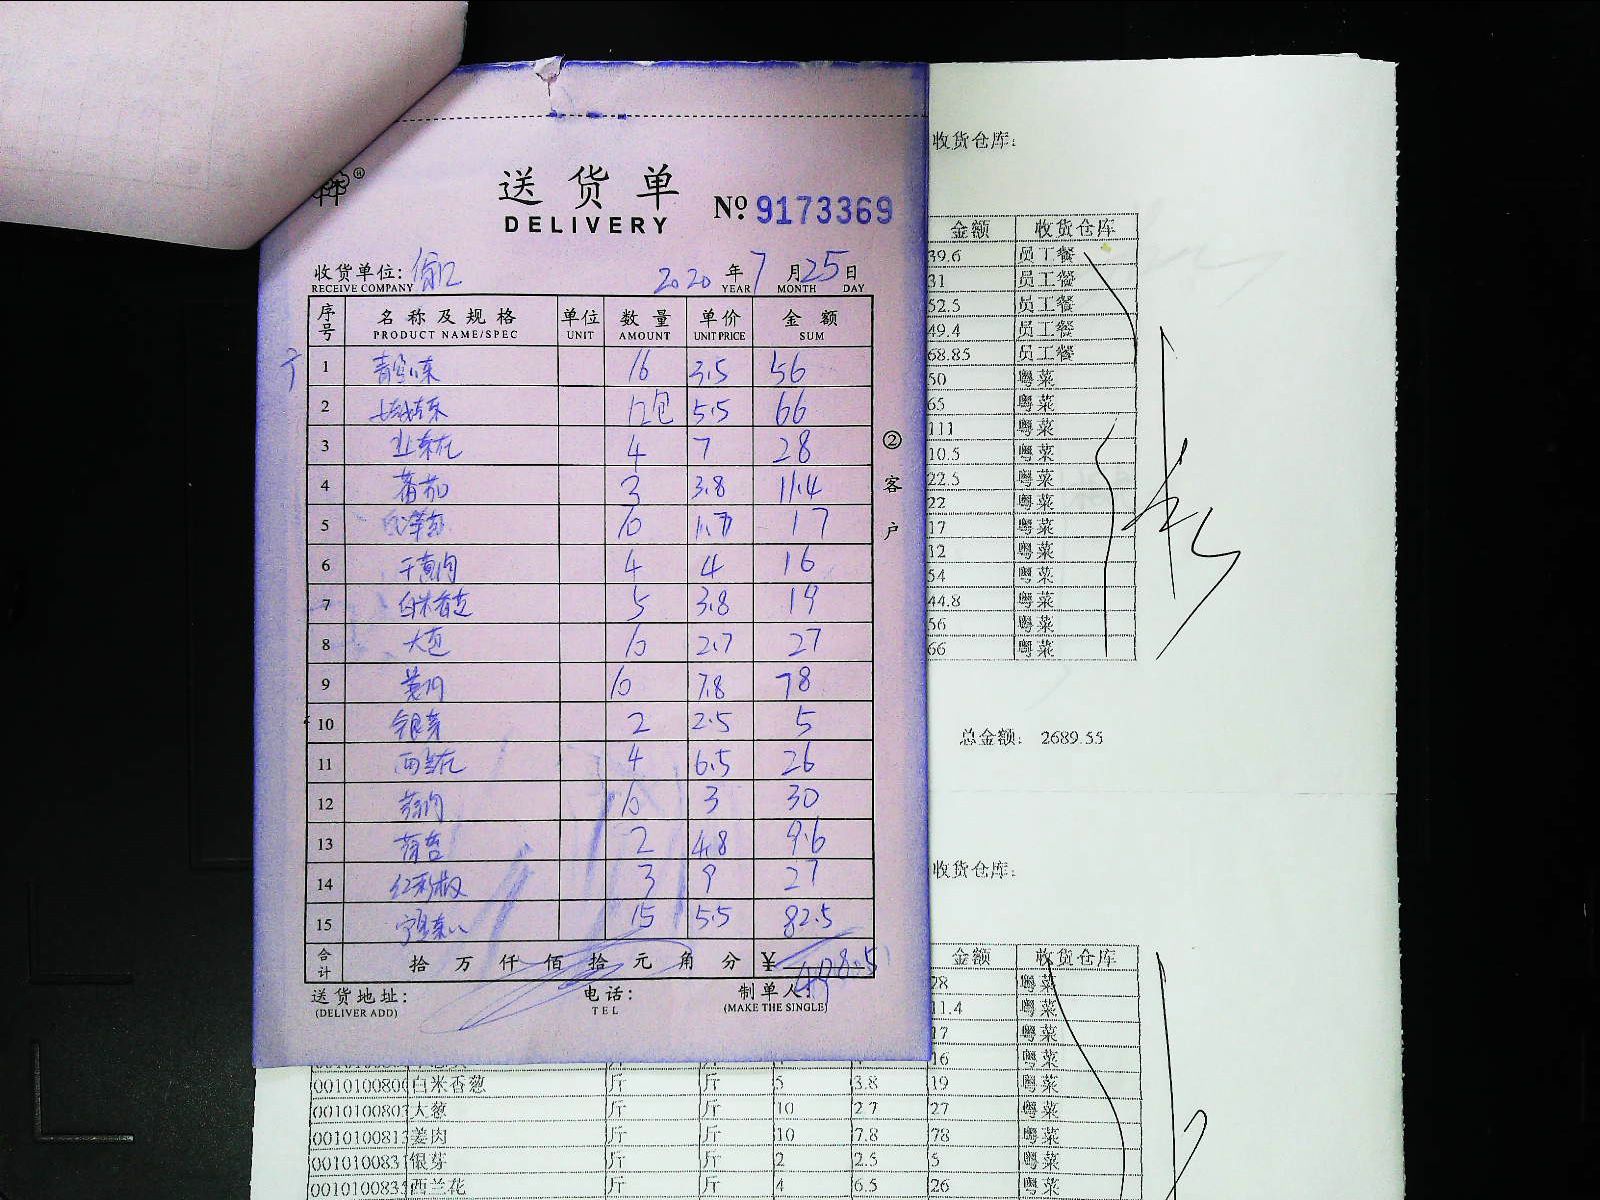 送货单
DELIVERY
№ 9173369
收货单位:
RECEIVE COMPANY
2020 年 7 月 25 日
YEAR MONTH DAY
序号 名称及规格 单位 数量 单价 金额
PRODUCT NAME/SPEC UNIT AMOUNT UNIT PRICE SUM
1 16 3.5 56
2 12包 5.5 66
3 4 7 28
4 番茄 3 3.8 11.4
5 10 1.7 17
6 4 4 16
7 白米香葱 5 3.8 19
8 大葱 10 2.7 27
9 姜肉 10 7.8 78
10 银芽 2 2.5 5
11 西兰花 4 6.5 26
12 10 3 30
13 2 4.8 9.6
14 3 9 27
15 15 5.5 82.5
合计 拾万仟佰拾元角分 ¥ 498.5
送货地址: 电话: 制单人:
(DELIVER ADD) TEL (MAKE THE SINGLE)
②客户
收货仓库:
金额 收货仓库
39.6 员工餐
31 员工餐
52.5 员工餐
49.4 员工餐
68.85 员工餐
50 粤菜
65 粤菜
111 粤菜
10.5 粤菜
22.5 粤菜
22 粤菜
17 粤菜
12 粤菜
54 粤菜
44.8 粤菜
56 粤菜
66 粤菜
总金额: 2689.55
收货仓库:
金额 收货仓库
28 粤菜
11.4 粤菜
17 粤菜
16 粤菜
白米香葱 斤 斤 5 3.8 19 粤菜
大葱 斤 斤 10 2.7 27 粤菜
姜肉 斤 斤 10 7.8 78 粤菜
银芽 斤 斤 2 2.5 5 粤菜
西兰花 斤 斤 4 6.5 26 粤菜